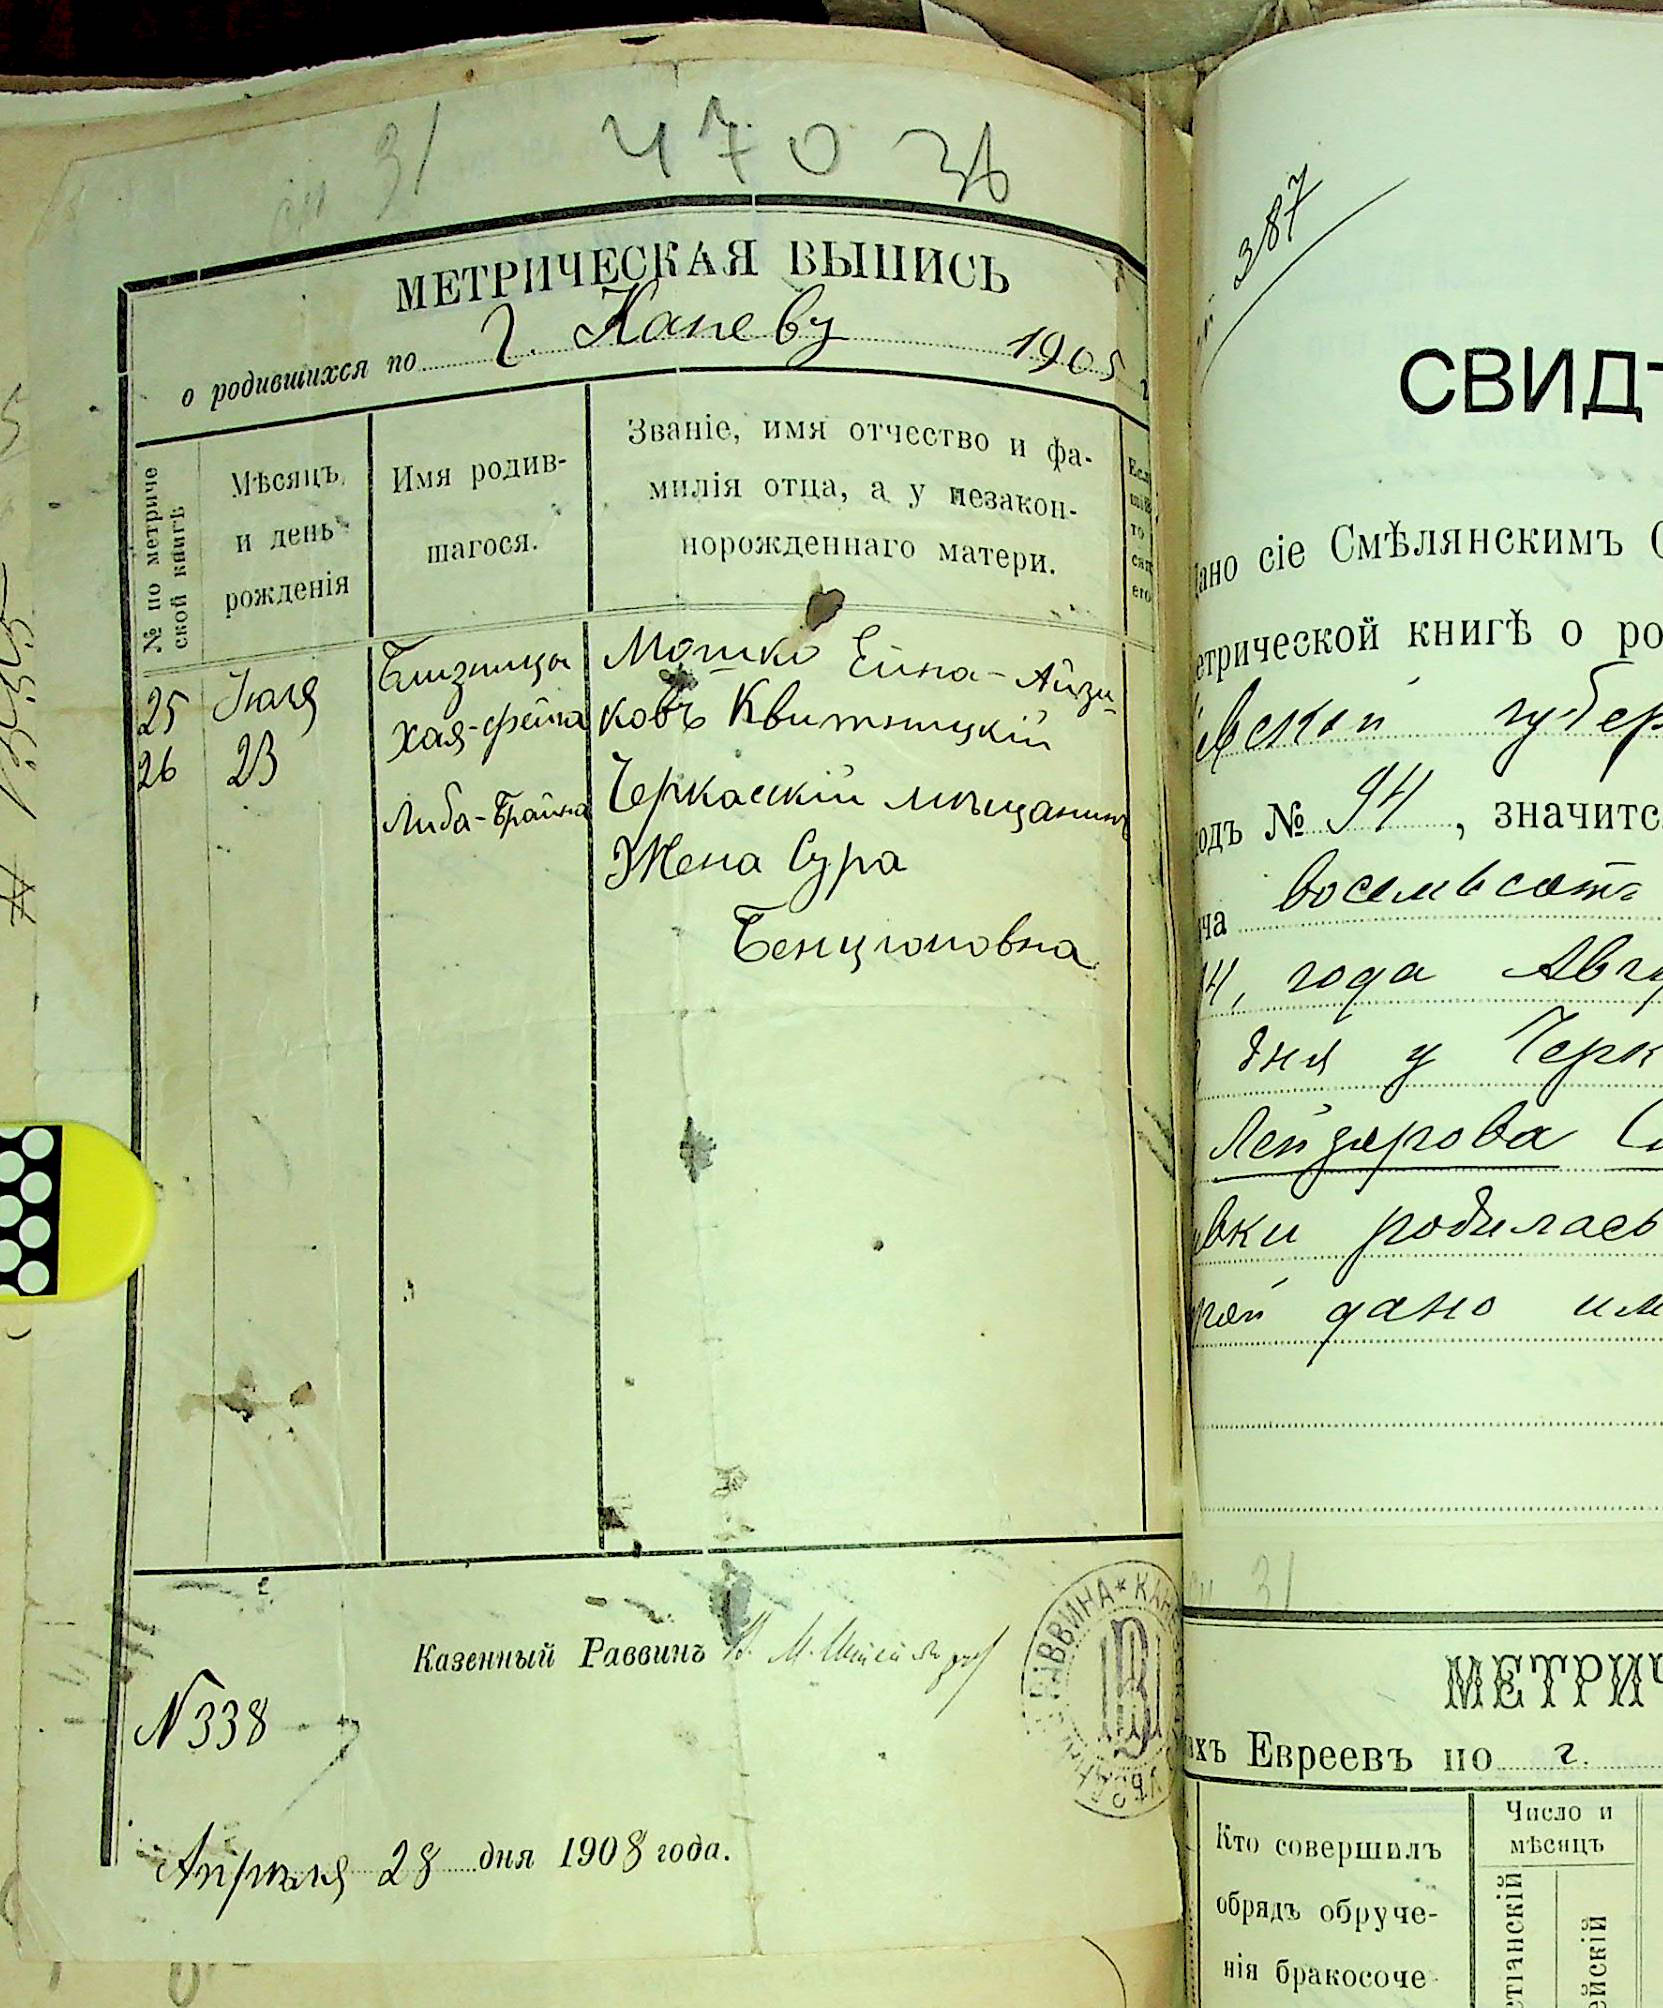 31
470 36
МЕТРИЧЕСКАЯ ВЫПИСЬ
о родившихся по г. Каневу 1905
№ по метриче
ской книгѣ
Мѣсяцъ
и день
рожденія
Имя родив-
шагося.
Званіе, имя отчество и фа-
милія отца, а у незакон-
норожденнаго матери.
25
26
Іюля
23
Близницы
Хая-Фейга
Либа-Брайна
Мошко Ейна-Айзи-
ковъ Квитницкій
Черкасскій мѣщанинъ
Жена Сура
Бенціоновна
Казенный Раввинъ
N 338
Апрѣля 28 дня 1908 года.
РАВВИНА * КАНЕВ
387
СВИДѢ
Дано сіе Смѣлянскимъ
етрической книгѣ о ро
евской губер
одъ № 94, значитс
ча восемьсотъ
94, года Авгу
дня у Черк
Лейзерова
вки родилась
рой дано им
31
МЕТРИЧ
хъ Евреевъ по г.
Кто совершилъ
обрядъ обруче-
нія бракосоче
Число и
мѣсяцъ
стіанскій
ейскій